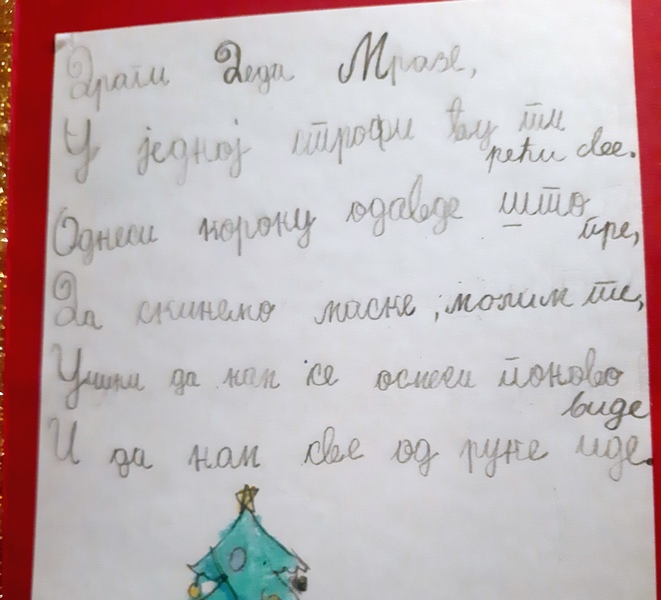 Драги Деда Мразе,
У једној строфи ћу ти
рећи све.
Однеси корону одавде што
пре,
Да скинемо маске, молим те,
Учини да нам се осмеси поново
виде
И да нам све од руке иде.